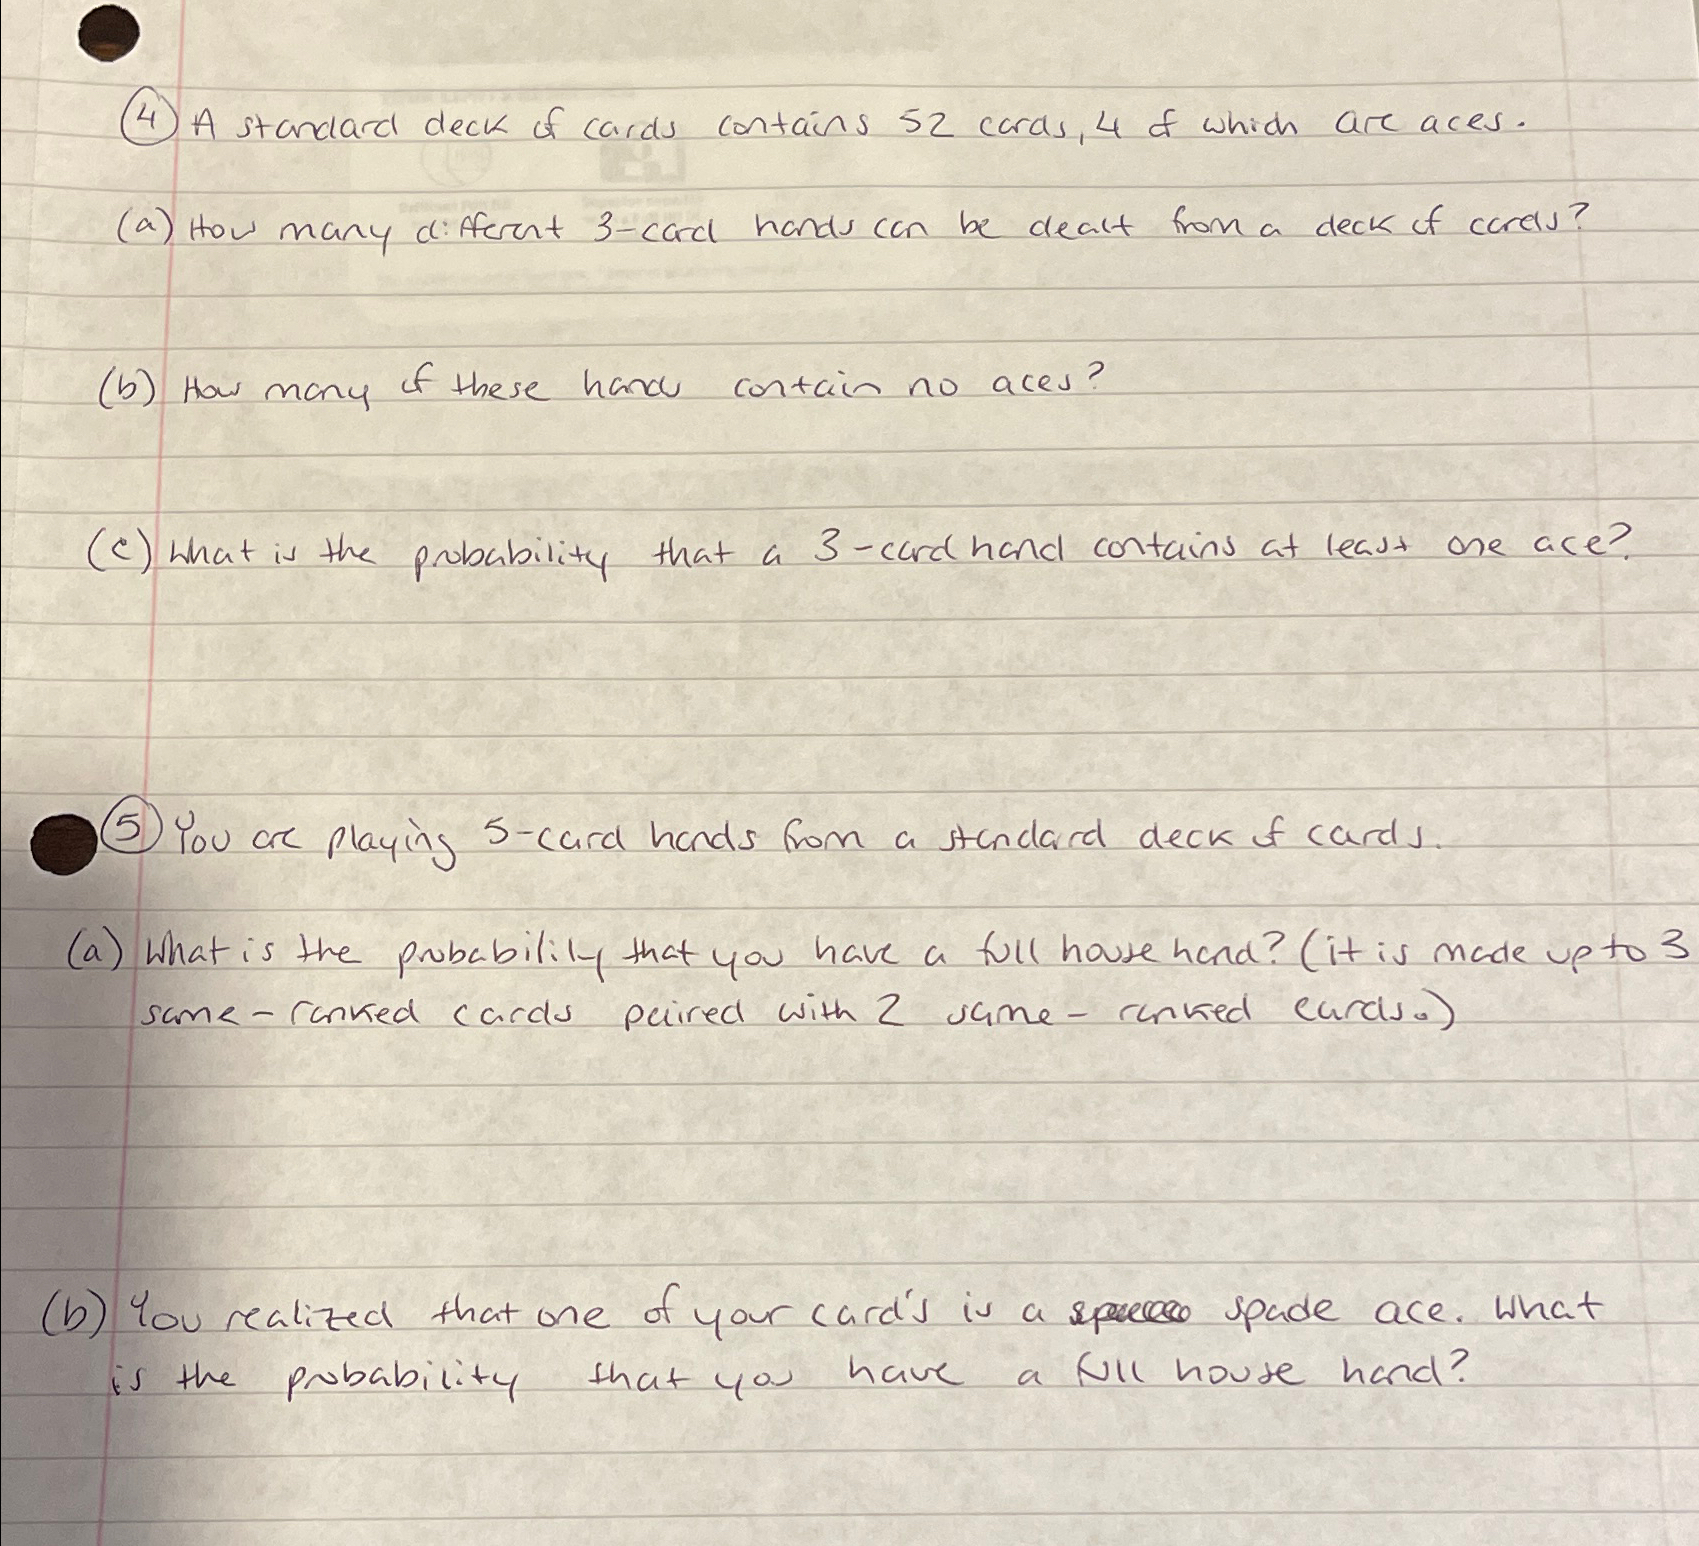 ④ A standard deck of cards contains 52 cards, 4 of which are aces.
(a) How many different 3-card hands can be dealt from a deck of cards?
(b) How many of these hands contain no aces?
(c) What is the probability that a 3-card hand contains at least one ace?
⑤ You are playing 5-card hands from a standard deck of cards.
(a) What is the probability that you have a full house hand? (it is made up to 3
same-ranked cards paired with 2 same-ranked cards.)
(b) You realized that one of your card's is a spade ace. What
is the probability that you have a full house hand?